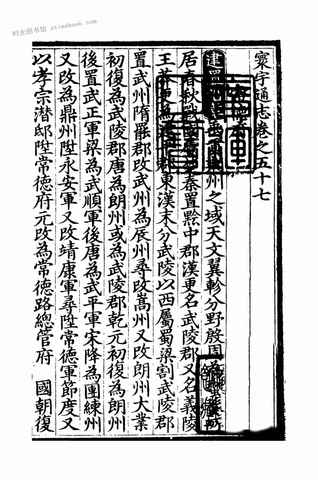 寰宇通志卷之五十七
建置沿革 州之域天文翼軫分野殷周
居春秋戰國 秦置黔中郡漢更名武陵郡又名義陵
王莽 東漢末分武陵以西屬蜀梁割武陵郡
置武州隋罷郡改武州為辰州尋改嵩州又改朗州大業
初復為武陵郡唐為朗州或為武陵郡乾元初復為朗州
後置武正軍梁為武順軍後唐為武平軍宋降為團練州
又改為鼎州陞永安軍又改靖康軍尋陞常德軍節度又
以孝宗潛邸陞常德府元改為常德路總管府 國朝復